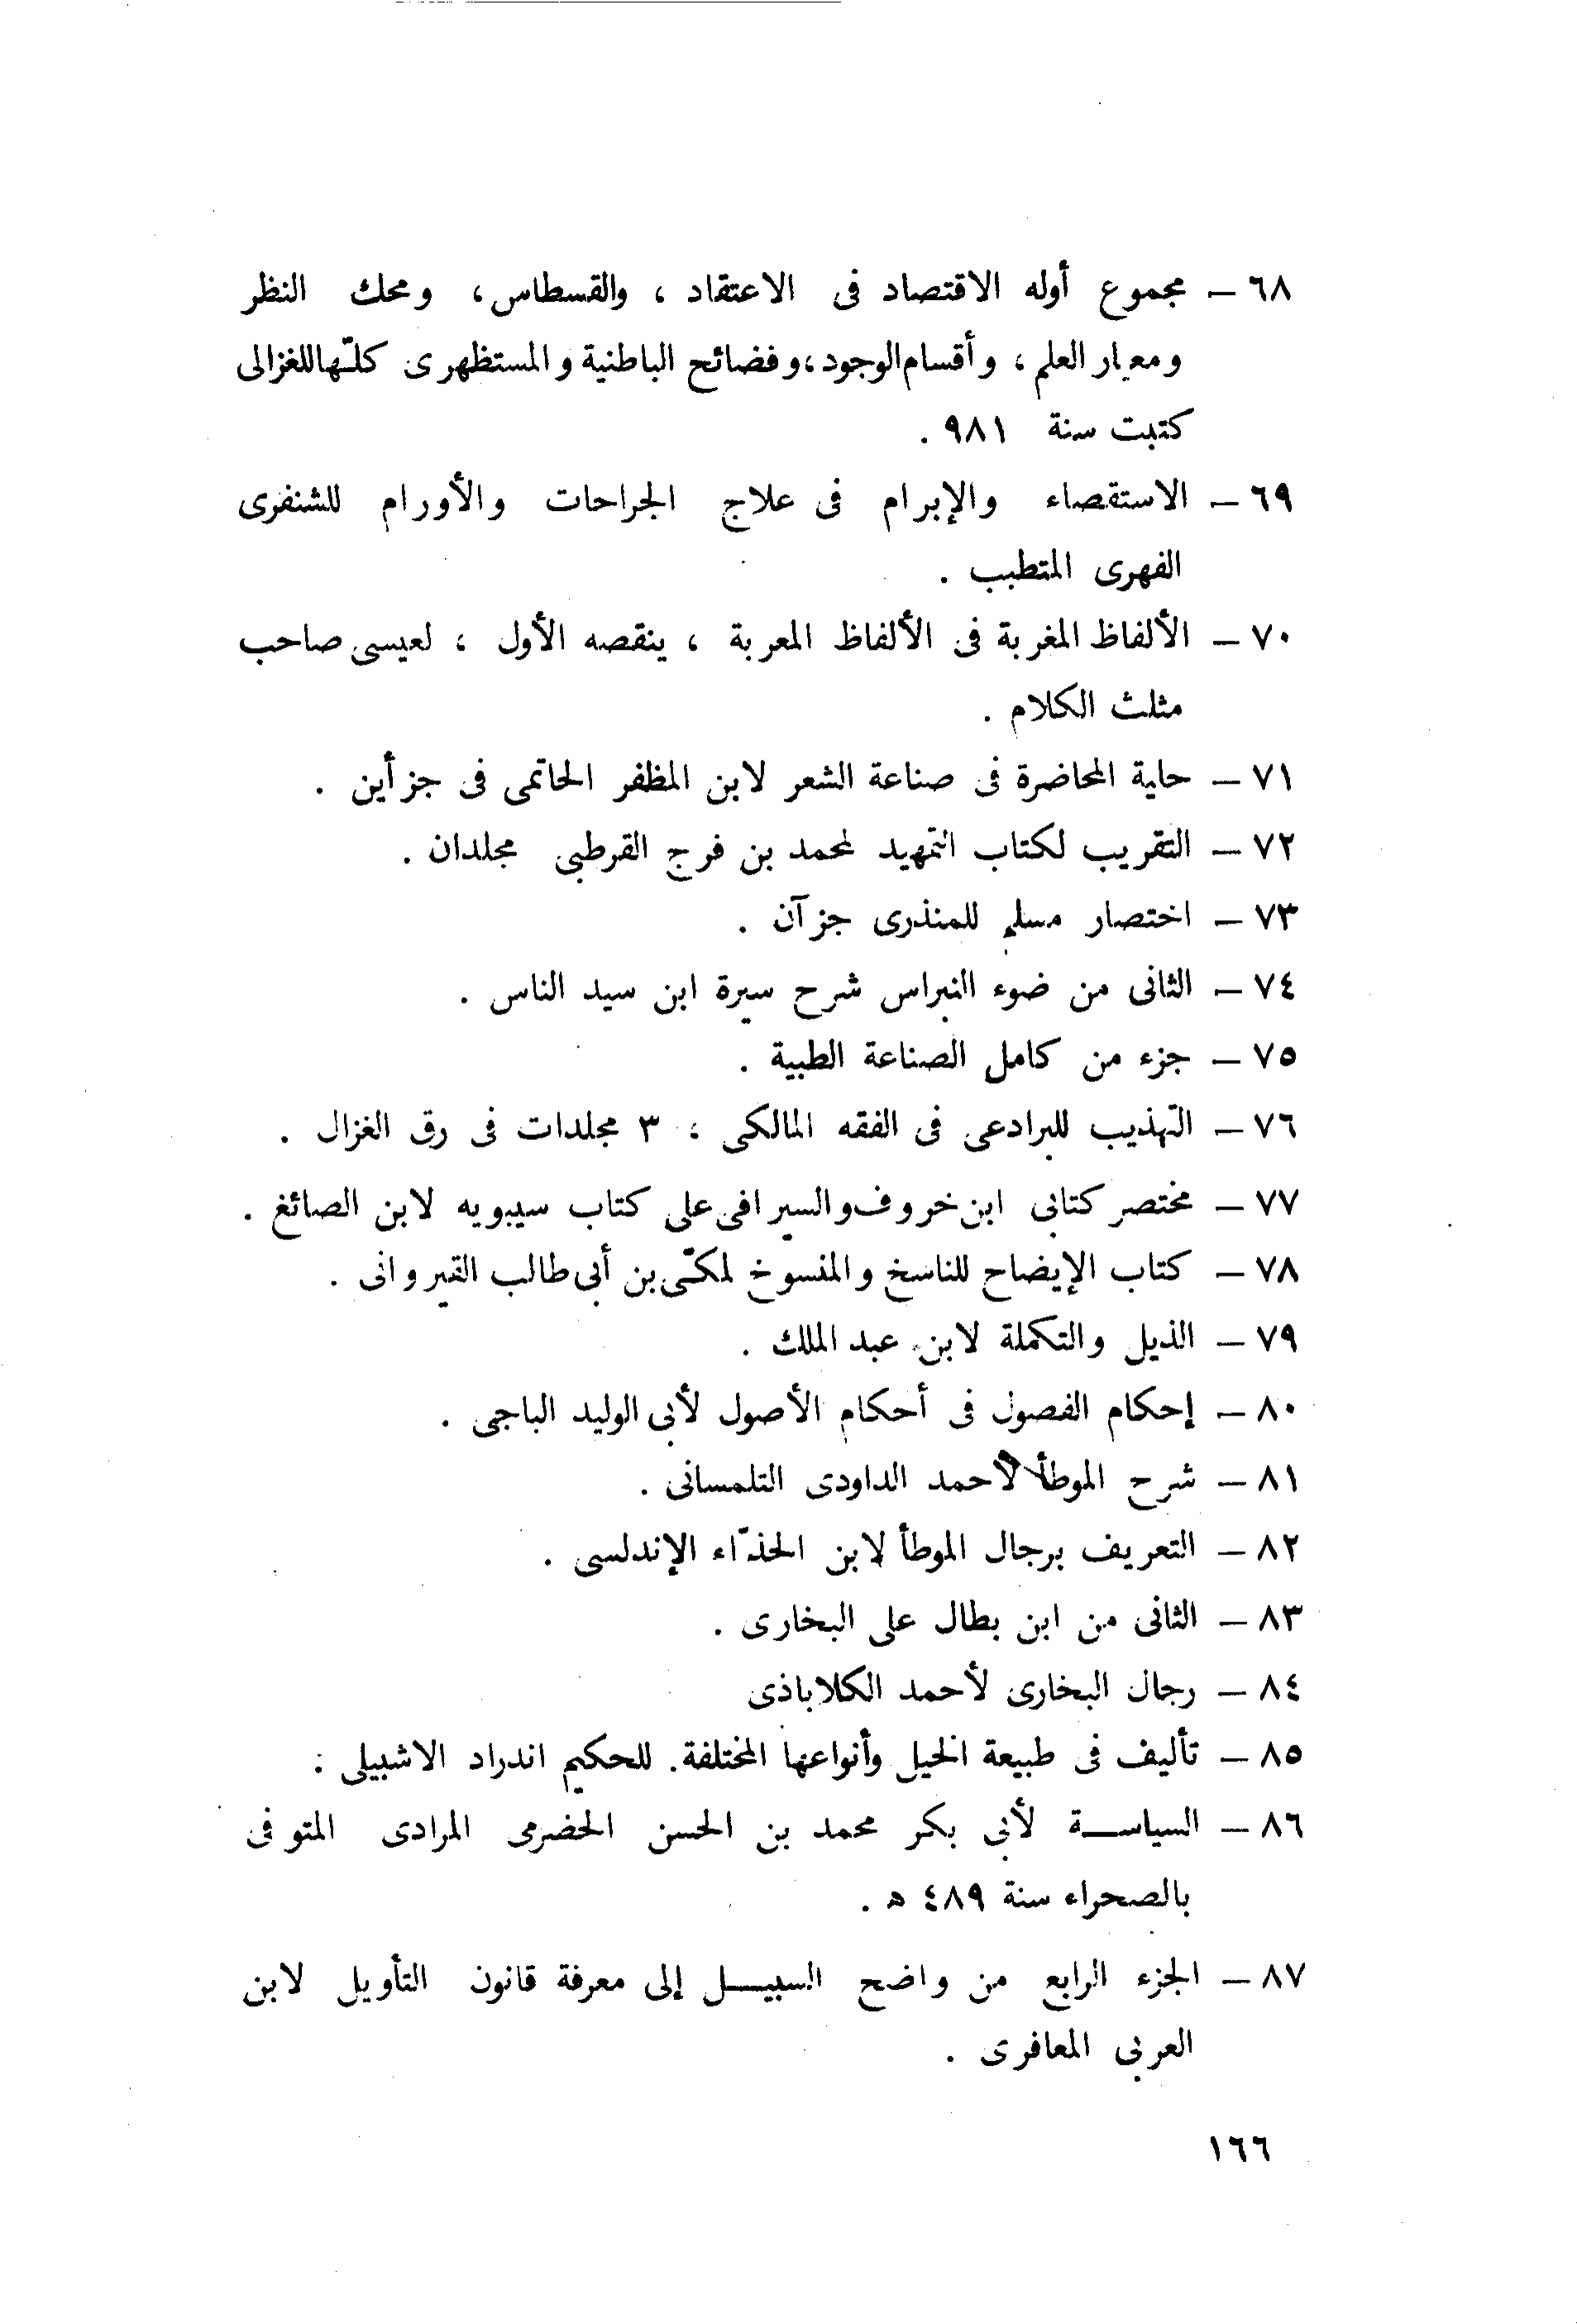 ٦٨ – مجموع أوله الاقتصاد فى الاعتقاد ، والقسطاس ، ومحك النظر
ومعيار العلم ، وأقسام الوجود ، وفضائح الباطنية والمستظهرى كلّها للغزالى
كتبت سنة ٩٨١ .
٦٩ – الاستقصاء والإبرام فى علاج الجراحات والأورام للشنفرى
الفهرى المتطبب .
٧٠ – الألفاظ المغربة فى الألفاظ المعربة ، ينقصه الأول ، لعيسى صاحب
مثلث الكلام .
٧١ – حلية المحاضرة فى صناعة الشعر لابن المظفر الحاتمى فى جزأين .
٧٢ – التقريب لكتاب التمهيد لمحمد بن فرج القرطبى مجلدان .
٧٣ – اختصار مسلم للمنذرى جزآن .
٧٤ – الثانى من ضوء النبراس شرح سيرة ابن سيد الناس .
٧٥ – جزء من كامل الصناعة الطبية .
٧٦ – التهذيب للبرادعى فى الفقه المالكى ، ٣ مجلدات فى رق الغزال .
٧٧ – مختصر كتابى ابن خروف والسيرافى على كتاب سيبويه لابن الصائغ .
٧٨ – كتاب الإيضاح للناسخ والمنسوخ لمكّى بن أبى طالب القيروانى .
٧٩ – الذيل والتكملة لابن عبد الملك .
٨٠ – إحكام الفصول فى أحكام الأصول لأبى الوليد الباجى .
٨١ – شرح الموطأ لأحمد الداودى التلمسانى .
٨٢ – التعريف برجال الموطأ لابن الحذّاء الإندلسى .
٨٣ – الثانى من ابن بطال على البخارى .
٨٤ – رجال البخارى لأحمد الكلاباذى
٨٥ – تأليف فى طبيعة الخيل وأنواعها المختلفة . للحكيم اندراد الاشبيلى :
٨٦ – السياسة لأبى بكر محمد بن الحسن الحضرمى المرادى المتوفى
بالصحراء سنة ٤٨٩ ه .
٨٧ – الجزء الرابع من واضح السبيل إلى معرفة قانون التأويل لابن
العربى المعافرى .
١٦٦